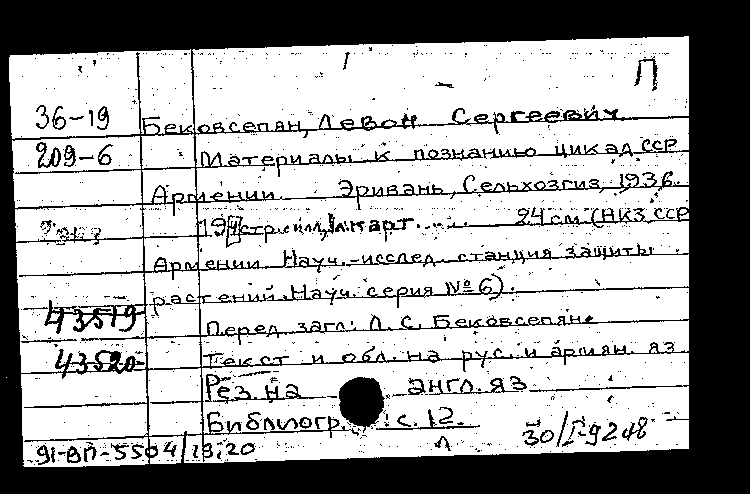 П
36-19 Бековсепян, Левон Сергеевич.
209-6 Материалы к познанию цикад ССР
Армении. Эривань, Сельхозгиз, 1936.
стр. илл., 1 карт. 24 см (НКЗ ССР
Армении. Науч.-исслед. станция защиты
растений. Науч. серия № 6).
43519 Перед загл.: Л. С. Бековсепян.
43520 Текст и обл. на рус. и армян. яз.
Рез. на англ. яз.
Библиогр. с. 12.
91-ВП-5504/19,20 Л 30/I-9248